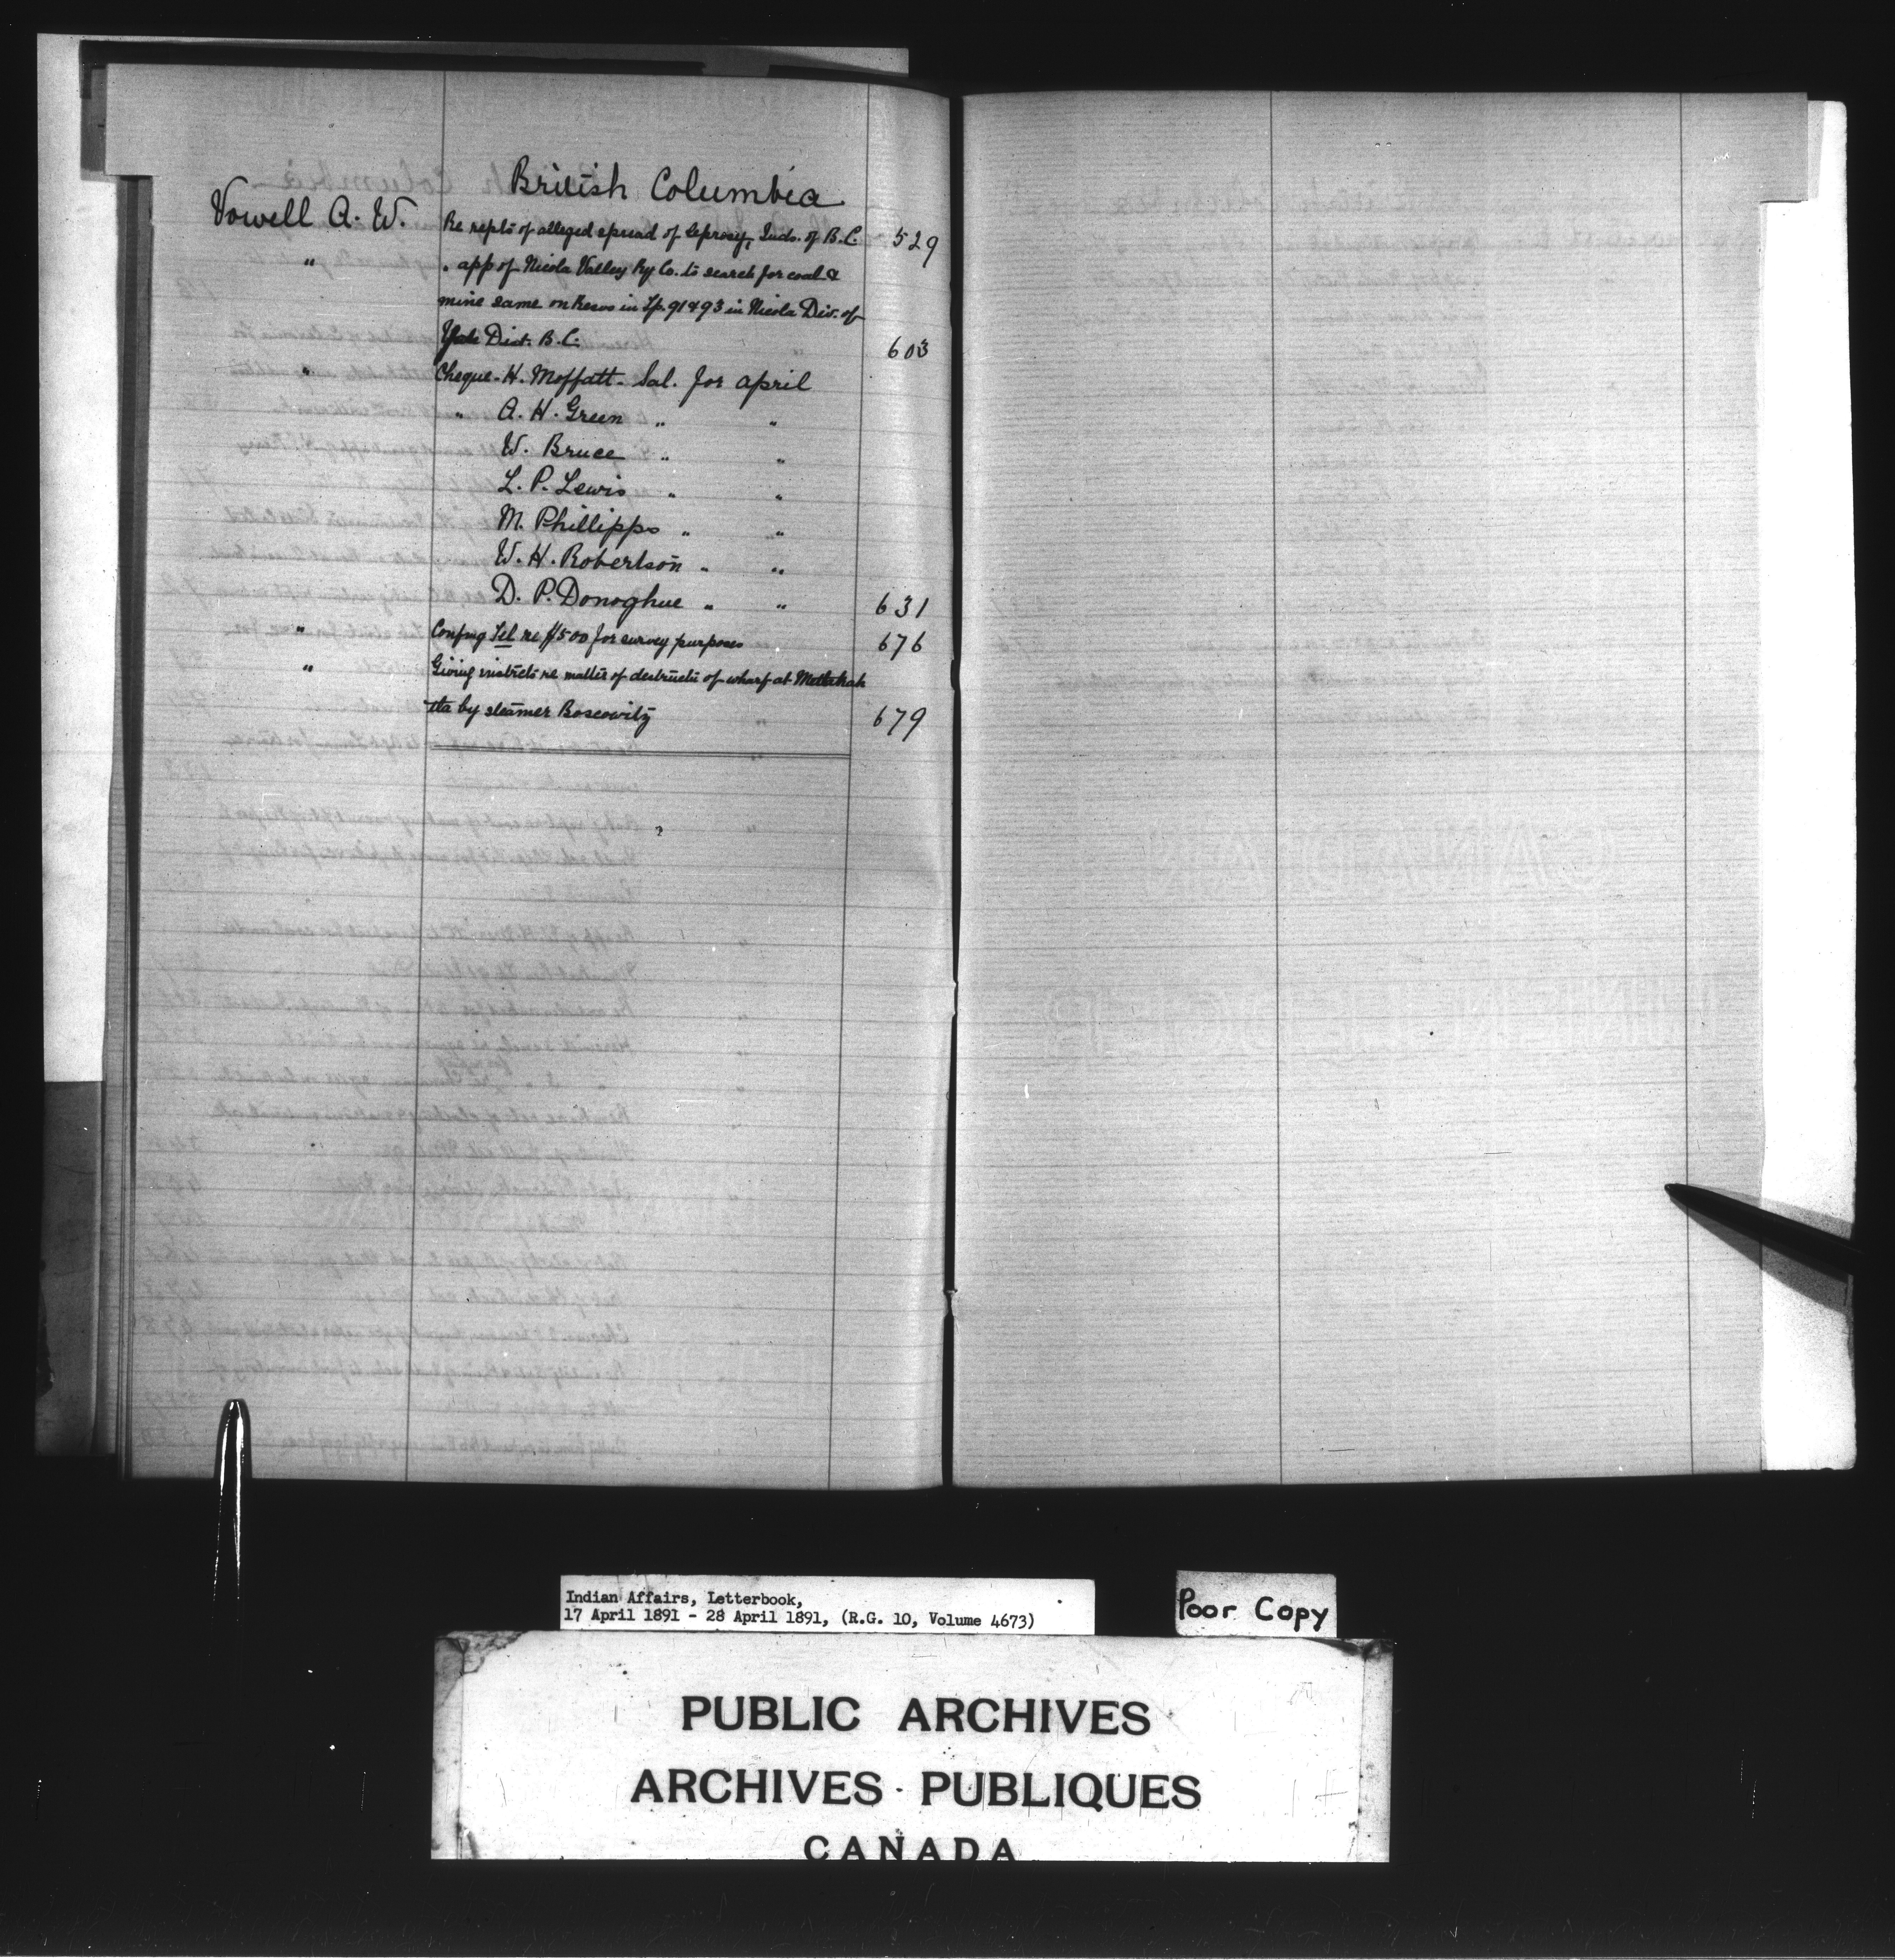 British Columbia
Vowell A. W. Re repts of alleged spread of leprosy, Inds. of B.C. 529
" " app of Nicola Valley Ry Co. to search for coal &
mine same on Resvs in Tp. 91 & 93 in Nicola Div. of
Yale Dist. B.C. 603
" Cheque - H. Moffatt - Sal. for April
" A. H. Green " "
W. Bruce " "
L. P. Lewis " "
M. Phillipps " "
W. H. Robertson " "
D. P. Donoghue " " 631
" Confmg Tel re $500 for survey purposes 676
" Giving instructs re matter of destructn of wharf at Metlakah
tla by steamer Boscowitz 679
Indian Affairs, Letterbook,
17 April 1891 - 28 April 1891, (R.G. 10, Volume 4673)
Poor Copy
PUBLIC ARCHIVES
ARCHIVES PUBLIQUES
CANADA